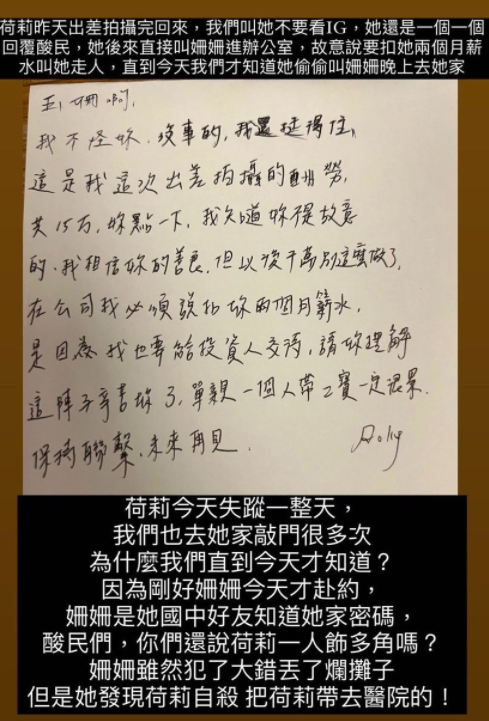 荷莉昨天出差拍攝完回來，我們叫她不要看IG，她還是一個一個
回覆酸民，她後來直接叫姍姍進辦公室，故意說要扣她兩個月薪
水叫她走人，直到今天我們才知道她偷偷叫姍姍晚上去她家
姍啊，
我不怪妳．沒事的，我還挺得住，
這是我這次出差拍攝的酬勞，
共15万，妳點一下，我知道妳不是故意
的．我相信妳的善良．但以後千萬別這麼做了，
在公司我必須說扣妳兩個月薪水，
是因為我也要給投資人交待，請妳理解
這陣子辛苦妳了，單親一個人帶2寶一定很累．
保持聯繫．未來再見．
荷莉今天失蹤一整天，
我們也去她家敲門很多次
為什麼我們直到今天才知道？
因為剛好姍姍今天才赴約，
姍姍是她國中好友知道她家密碼，
酸民們，你們還說荷莉一人飾多角嗎？
姍姍雖然犯了大錯丟了爛攤子
但是她發現荷莉自殺 把荷莉帶去醫院的！